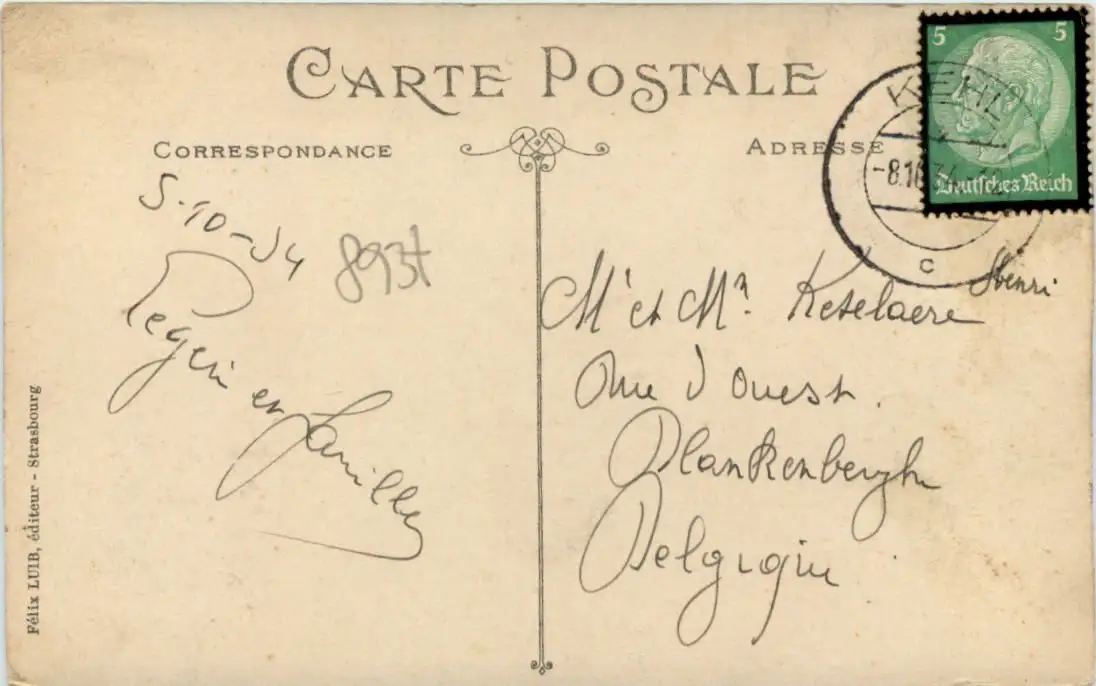 CARTE POSTALE
CORRESPONDANCE
ADRESSE
5 5
Deutsches Reich
KEHL
-8.10.34.-18
c
5-10-34
893t
Pegein et famille
Mr et Mm. Ketelaere Henri
Rue d Ouest.
Blankenberghe
Belgique
Félix LUIB, éditeur - Strasbourg